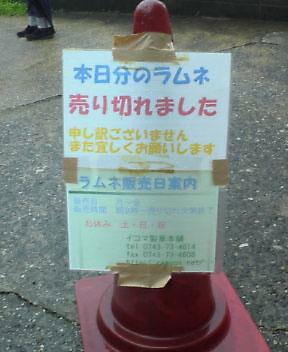 本日分のラムネ
売り切れました
申し訳ございません
また宜しくお願いします
ラムネ販売日案内
販売日 月～金
販売時間 朝9時～売り切れ次第終了
お休み 土・日・祝
イコマ製菓本舗
tel 0743-73-4614
fax 0743-73-4608